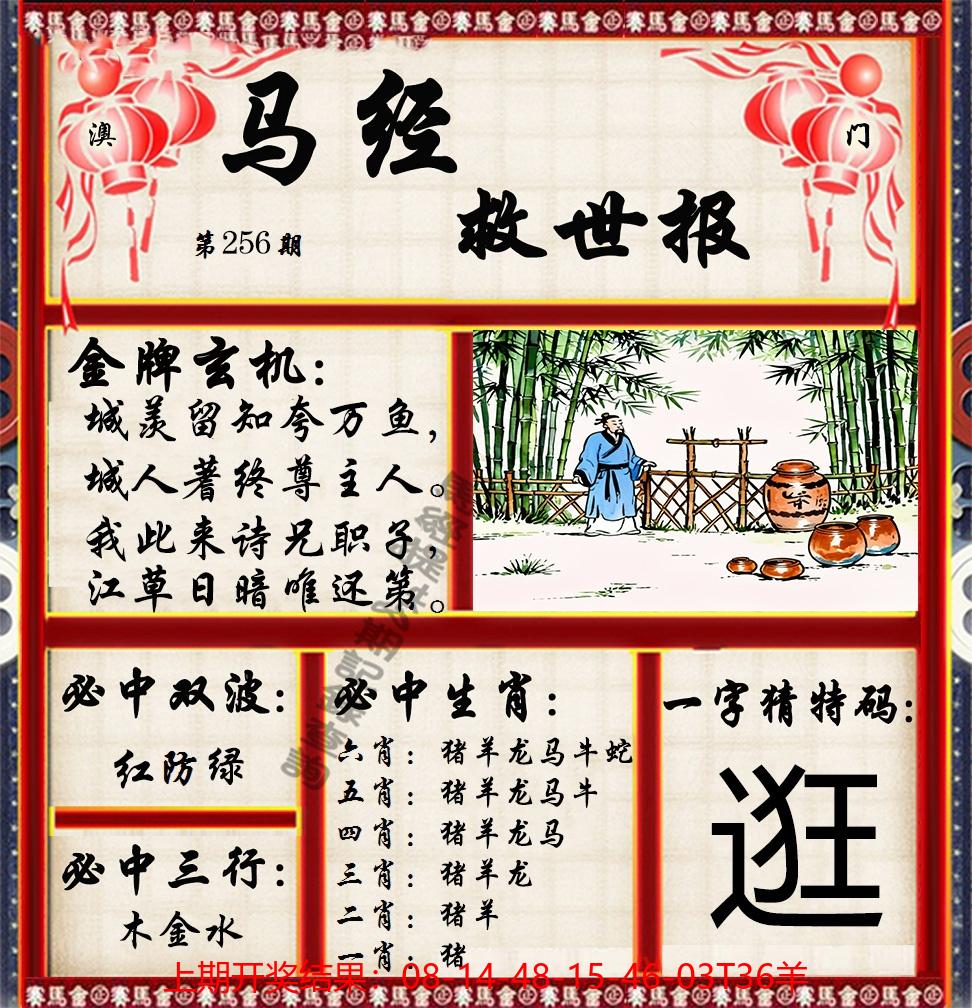 澳
门
马经
救世报
第256期
金牌玄机：
城羡留知夸万鱼，
城人著终尊主人。
我此来诗兄职子，
江草日暗唯还第。
必中双波：
红防绿
必中三行：
木金水
必中生肖：
六肖：猪羊龙马牛蛇
五肖：猪羊龙马牛
四肖：猪羊龙马
三肖：猪羊龙
二肖：猪羊
一肖：猪
一字猜特码：
逛
上期开奖结果：08-14-48-15-46-03T36羊